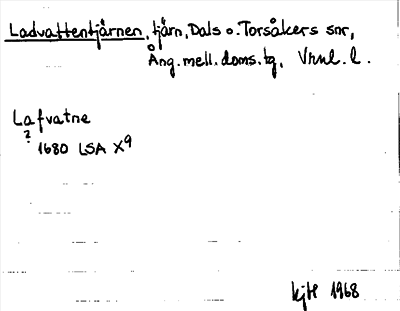 Ladvattentjärnen, tjärn, Dals o. Torsåkers snr,
Ång. mell. doms. tg, Vnnl. l.
Lafvatne
?
1680 LSA X9
1968